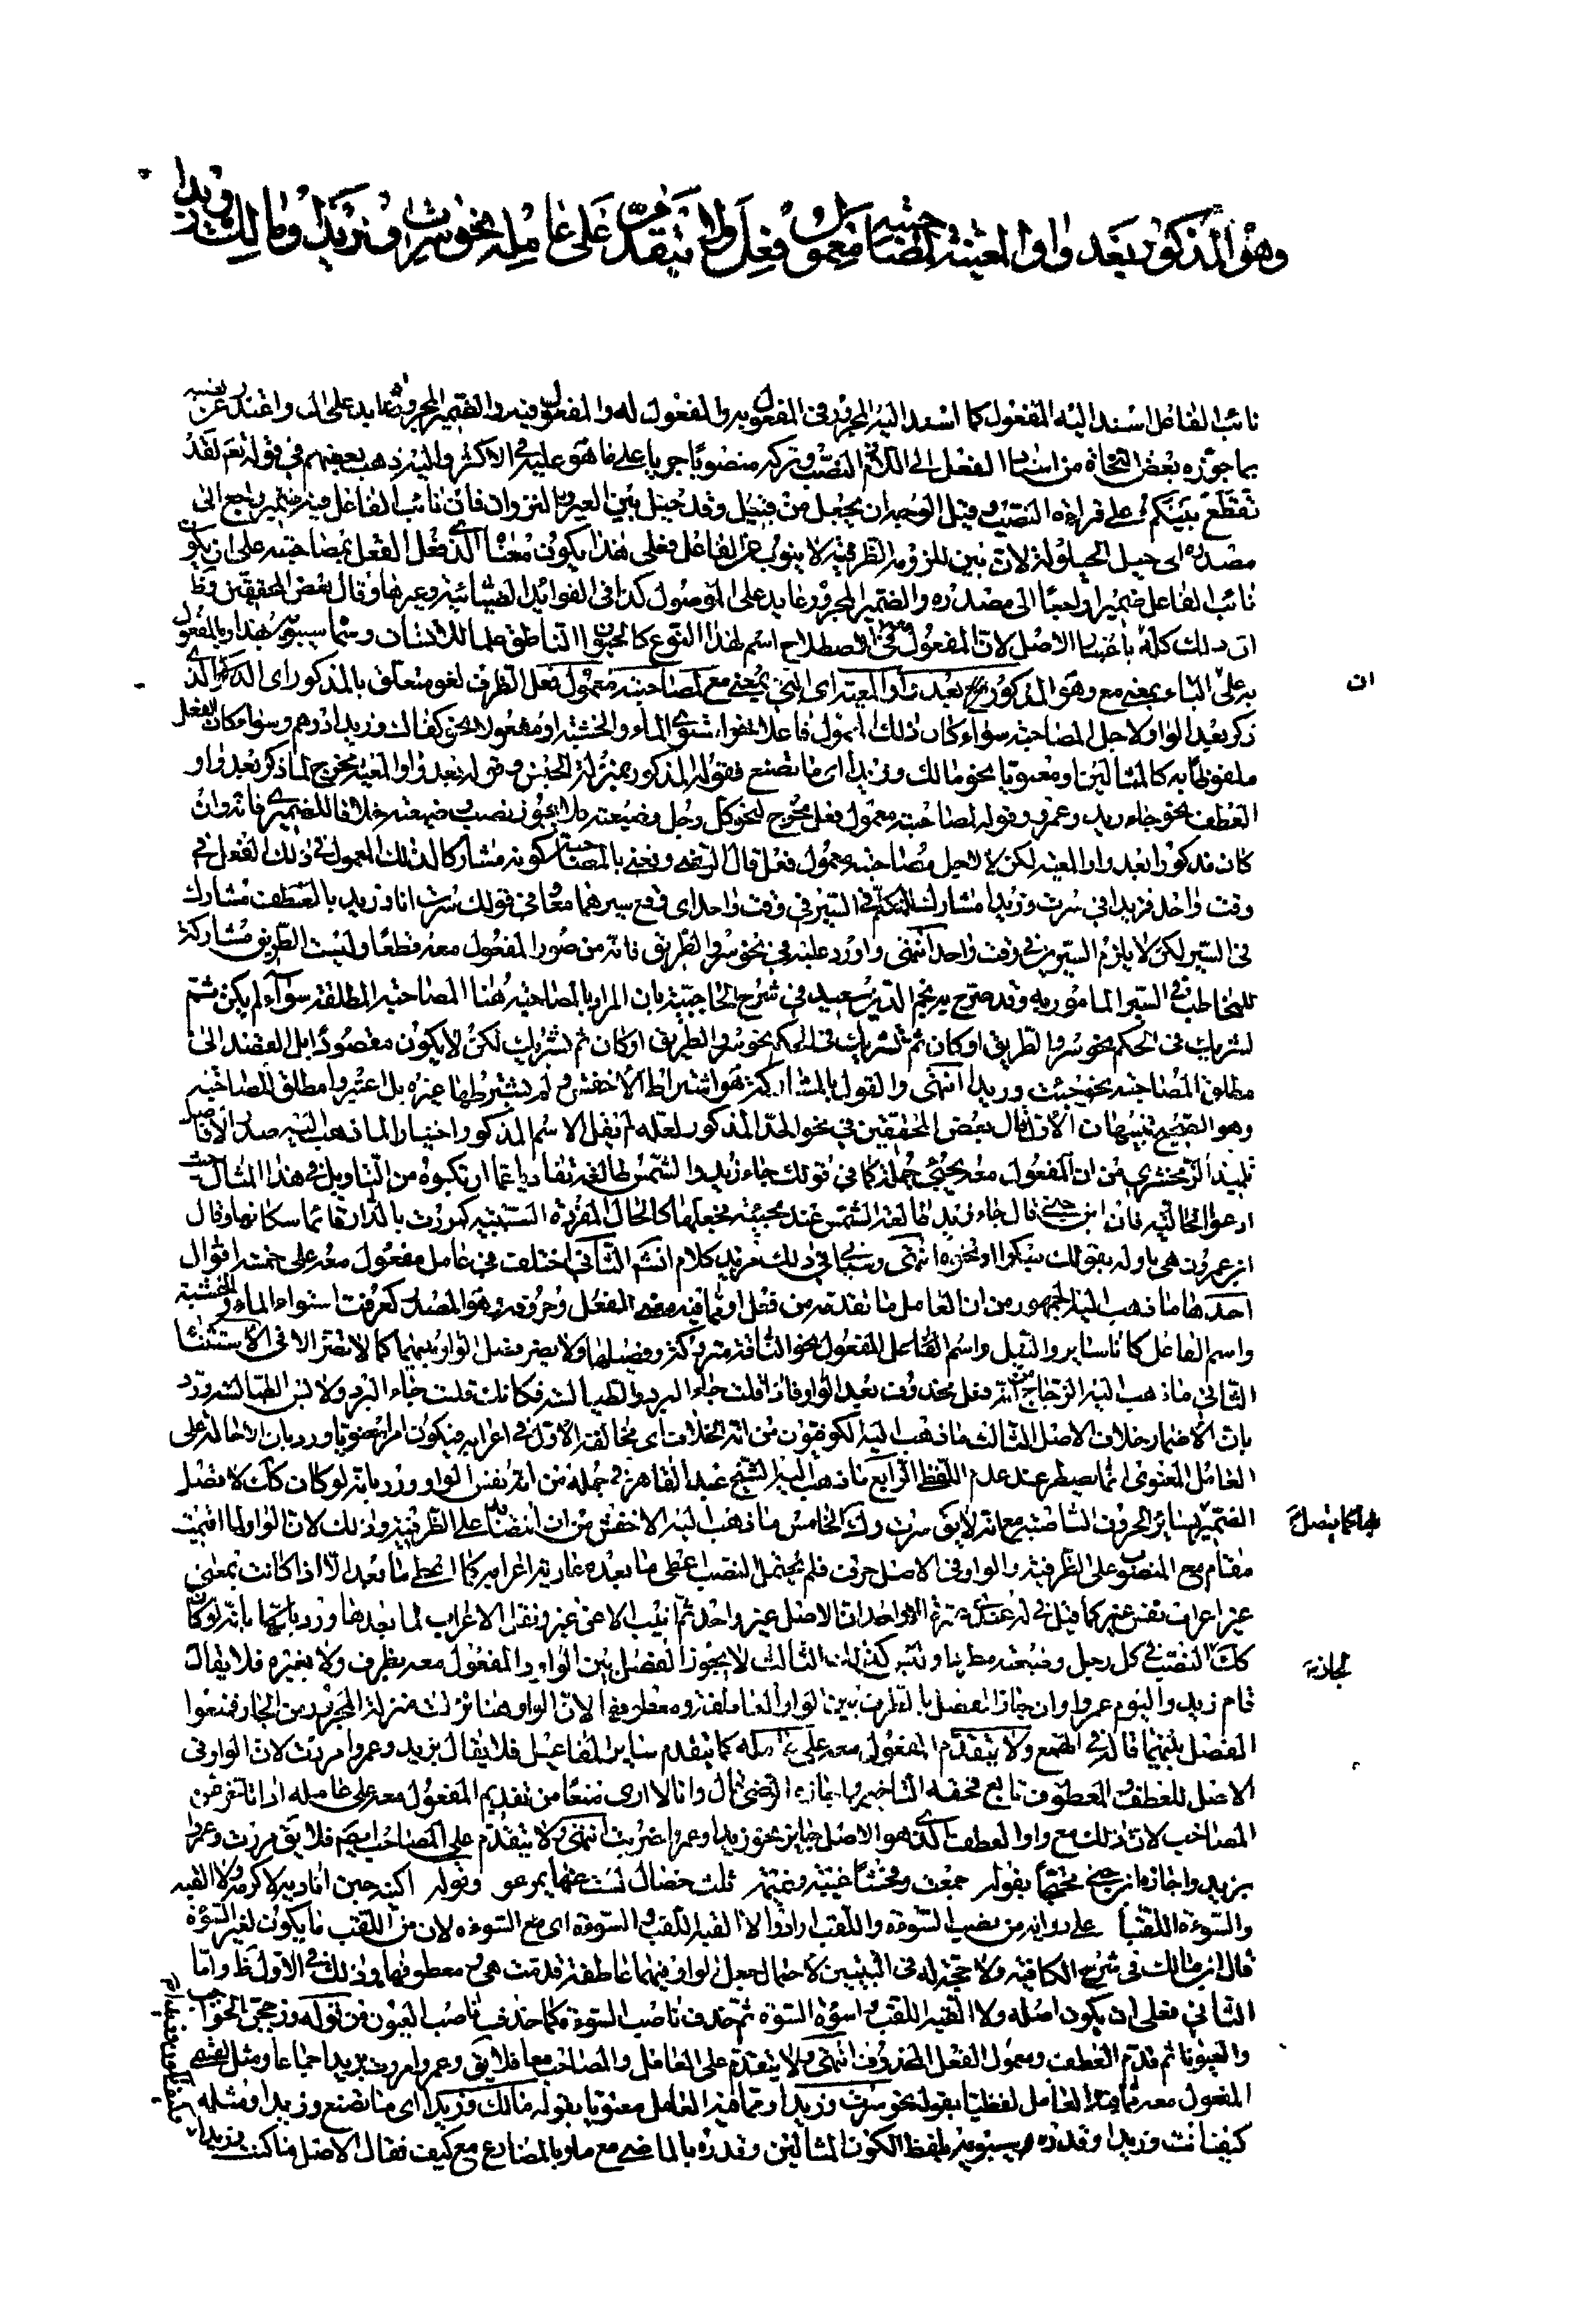 وهو المذكور بعد واو المعية لمصاحبة معمول فعل ولا يتقدم على عامله نحو سرت وزيدا ومالك وزيدا
نائب الفاعل اسند اليه المفعول كما اسند اليه المجرور في المفعول به والمفعول له والمفعول فيه والضمير المجرور عايد على ال واعتذر عن نصبه
بما جوزه بعض النحاة من اسناد الفعل الى اللازم النصب وتركه منصوبا جريا على ما هو عليه في الاكثر واليه ذهب بعضهم في قوله تعم لقد
تقطع بينكم على قراءة النصب وقيل الوجه ان يجعل من قبيل وقد حيل بين العير والنزوان فان نائب الفاعل فيه ضمير راجع الى
مصدره اى حيل الحيلولة لان بين للزومه الظرفية لا ينوب عن الفاعل فعلى هذا يكون معناه الذى فعل الفعل بمصاحبته على ان يكون
نائب الفاعل ضميرا راجعا الى مصدره والضمير المجرور عايد على الموصول كذا في الفوائد الضيائية وغيرها وقال بعض المحققين وظ
ان ذلك كله باعتبار الاصل لان المفعول معه في الاصطلاح اسم لهذا النوع كالحيوان الناطق علما للانسان وسماه سيبويه بهذا وبالمفعول
به على ان الباء بمعنى مع وهو المذكور بعد واو المعية اى التي بمعنى مع لمصاحبة معمول فعل الظرف لغو متعلق بالمذكور اى الذى
ذكر بعد الواو لاجل المصاحبة سواء كان ذلك المعمول فاعلا نحو استوى الماء والخشبة او مفعولا نحو كفاك وزيدا درهم وسواء كان الفعل
ملفوظا به كالمثالين او معنويا نحو مالك وزيدا اى ما تصنع فقوله المذكور بمنزلة الجنس وقوله بعد واو المعية مخرج لما ذكر بعد واو
العطف نحو جاء زيد وعمرو وقوله لمصاحبة معمول فعل مخرج لنحو كل رجل وضيعته فلا يجوز نصب ضيعته خلافا للصيمرى فانه وان
كان مذكورا بعد واو المعية لكن لا لاجل مصاحبة معمول فعل قال الرضي ونعنى بالمصاحبة كونه مشاركا لذلك المعمول في ذلك الفعل في
وقت واحد فزيدا في سرت وزيدا مشارك للمتكلم في السير في وقت واحد اى وقع سيرهما معا وفي قولك سرت انا وزيد بالعطف مشارك
في السير لكن لا يلزم السير في وقت واحد انتهى واورد عليه في نحو سر والطريق فانه من صور المفعول معه قطعا وليست الطريق مشاركة
للمخاطب في السير المامور به وقد صرح نجم الدين سعيد في شرح الحاجبية بان المراد بالمصاحبة هنا المصاحبة المطلقة سواء لم يكن ثم
تشريك في الحكم نحو سر والطريق او كان ثم تشريك في الحكم لكن لا يكون مقصودا بل القصد الى
مطلق المصاحبة نحو جئت وزيدا انتهى والقول بالمشاركة هو اشتراط الاخفش ولم يشترطها غيره بل اعتبروا مطلق المصاحبة
وهو الصحيح تنبيهات الاول قال بعض المحققين في نحو الحد المذكور لعله لم يقل الاسم المذكور اختيارا لما ذهب اليه صدر الافاضل
تلميذ الزمخشري من ان المفعول معه يجئ جملة كما في قولك جاء زيد والشمس طالعة تفاديا عما ارتكبوه من التاويل في هذا المثال حيث
ادعوا الحالية فان ابن جني قال جاء زيد طالعة الشمس عند مجيئه فجعلها كالحال المفردة السببية كمررت بالدار قائما سكانها وقال
ابن عمرون هي ماولة بقولك مبكرا او نحوه انتهى وسياتي في ذلك مزيد كلام انشم الثاني اختلف في عامل مفعول معه على خمسة اقوال
احدها ما ذهب اليه الجمهور من ان العامل ما تقدمه من فعل او ما فيه معنى الفعل وحروفه وهو المصدر كعرفت استواء الماء والخشبة
واسم الفاعل كانا ساير والنيل واسم المفعول نحو الناقة متروكة وفصيلها ولا يضر فصل الواو بينهما كما لا تضر الا في الاستثناء
الثاني ما ذهب اليه الزجاج من انه فعل محذوف بعد الواو فاذا قلت جاء البرد والطيالسة فكانك قلت جاء البرد ولابس الطيالسة ورد
بان الاضمار خلاف الاصل الثالث ما ذهب اليه الكوفيون من انه الخلاف اى مخالفة الاول في اعرابه فيكون امرا معنويا ورد بان الاحالة على
العامل المعنوى انما يصطر عند عدم اللفظ الرابع ما ذهب اليه الشيخ عبد القاهر في جمله من انه نفس الواو ورد بانه لو كان كك لاتصل
الضمير بها كما يتصل بسائر الحروف الناصبة مع انه لايق سرت وك الخامس ما ذهب اليه الاخفش من ان انتصابه على الظرفية وذلك لان الواو لما اقيمت
مقام مع المنصوب على الظرفية والواو في الاصل حرف فلم يحتمل النصب اعطى ما بعده عارية اعرابه كما اعطى ما بعد الا اذا كانت بمعنى
غير اعراب نفس غير كما قيل في له عندى عشرة الا واحد ان الاصل غير واحد ثم انيب الا عن غير ونقل الاعراب لما بعدها ورد بانه لو كان
كك لجاز النصب في كل رجل وضيعته مطردا وليس كذلك الثالث لا يجوز الفصل بين الواو والمفعول معه بظرف ولا بغيره فلا يقال
قام زيد واليوم عمروا وان جاز الفصل بالظرف بين الواو العاطفة ومعطوفها لان الواو هنا نزلت منزلة المجرور من الجار فمنعوا
الفصل بينهما قاله في الهمع ولا يتقدم المفعول معه على عامله كما يتقدم سائر المفاعيل فلا يقال بزيد وعمروا مررت لان الواو في
الاصل للعطف والمعطوف تابع فحقه التاخير واجازه الرضي قال وانا لا ارى منعا من تقديم المفعول معه على عامله اذا تاخر عن
المصاحب لان ذلك مع واو العطف الذى هو الاصل جايز نحو زيدا وعمرا ضربت انتهى ولا يتقدم على المصاحب ايضم فلايق مررت وعمرا
بزيد واجازه ابن جني محتجا بقوله جمعت وفحشا غيبة ونميمة ثلث خصال لست عنها بمرعو وقوله اكنيه حين اناديه لاكرمه ولا القبه
والسوءة اللقبا على رواية من نصب السوءة واللقب ارادوا لا القبه اللقب والسوءة اى مع السوءة لان من اللقب ما يكون لغير السوءة
قال ابن مالك في شرح الكافية ولا حجة له في البيتين لاحتمال جعل الواو فيهما عاطفة قدمت هي ومعطوفها وذلك في الاول ظ واما
الثاني فعلى ان يكون اصله ولا القبه اللقب واسوؤه السوءة ثم حذف ناصب السوءة كما حذف ناصب العيون من قوله وزججن الحواجب
والعيونا ثم قدم العطف ومعمول الفعل المحذوف انتهى ولا يتقدم على العامل والمصاحب معا فلايق وعمروا مررت بزيد اجماعا ومثل لقسمي
المفعول معه مما فيه العامل لفظيا بقوله نحو سرت وزيدا ومما فيه العامل معنويا بقوله مالك وزيدا اى ما تصنع وزيدا ومثله
كيف انت وزيدا وقدره سيبويه بلفظ الكون المثالين وقدره بالماضي مع ما وبالمضارع مع كيف فقال الاصل ما كنت وزيدا
ان
بها كما يتصل
لجاز